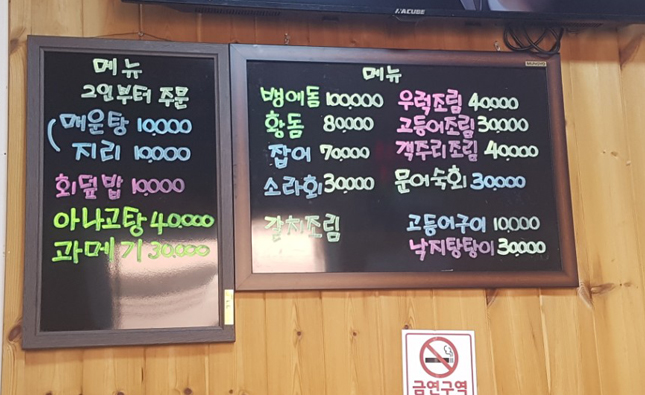 ACUBE
메뉴
2인부터 주문
매운탕 10,000
지리 10,000
회덮밥 10,000
아나고탕 40,000
과메기 30,000
메뉴
병에돔 100,000
황돔 80,000
잡어 70,000
소라회 30,000
갈치조림
우럭조림 40,000
고등어조림 30,000
객주리조림 40,000
문어숙회 30,000
고등어구이 10,000
낙지탕탕이 30,000
금연구역